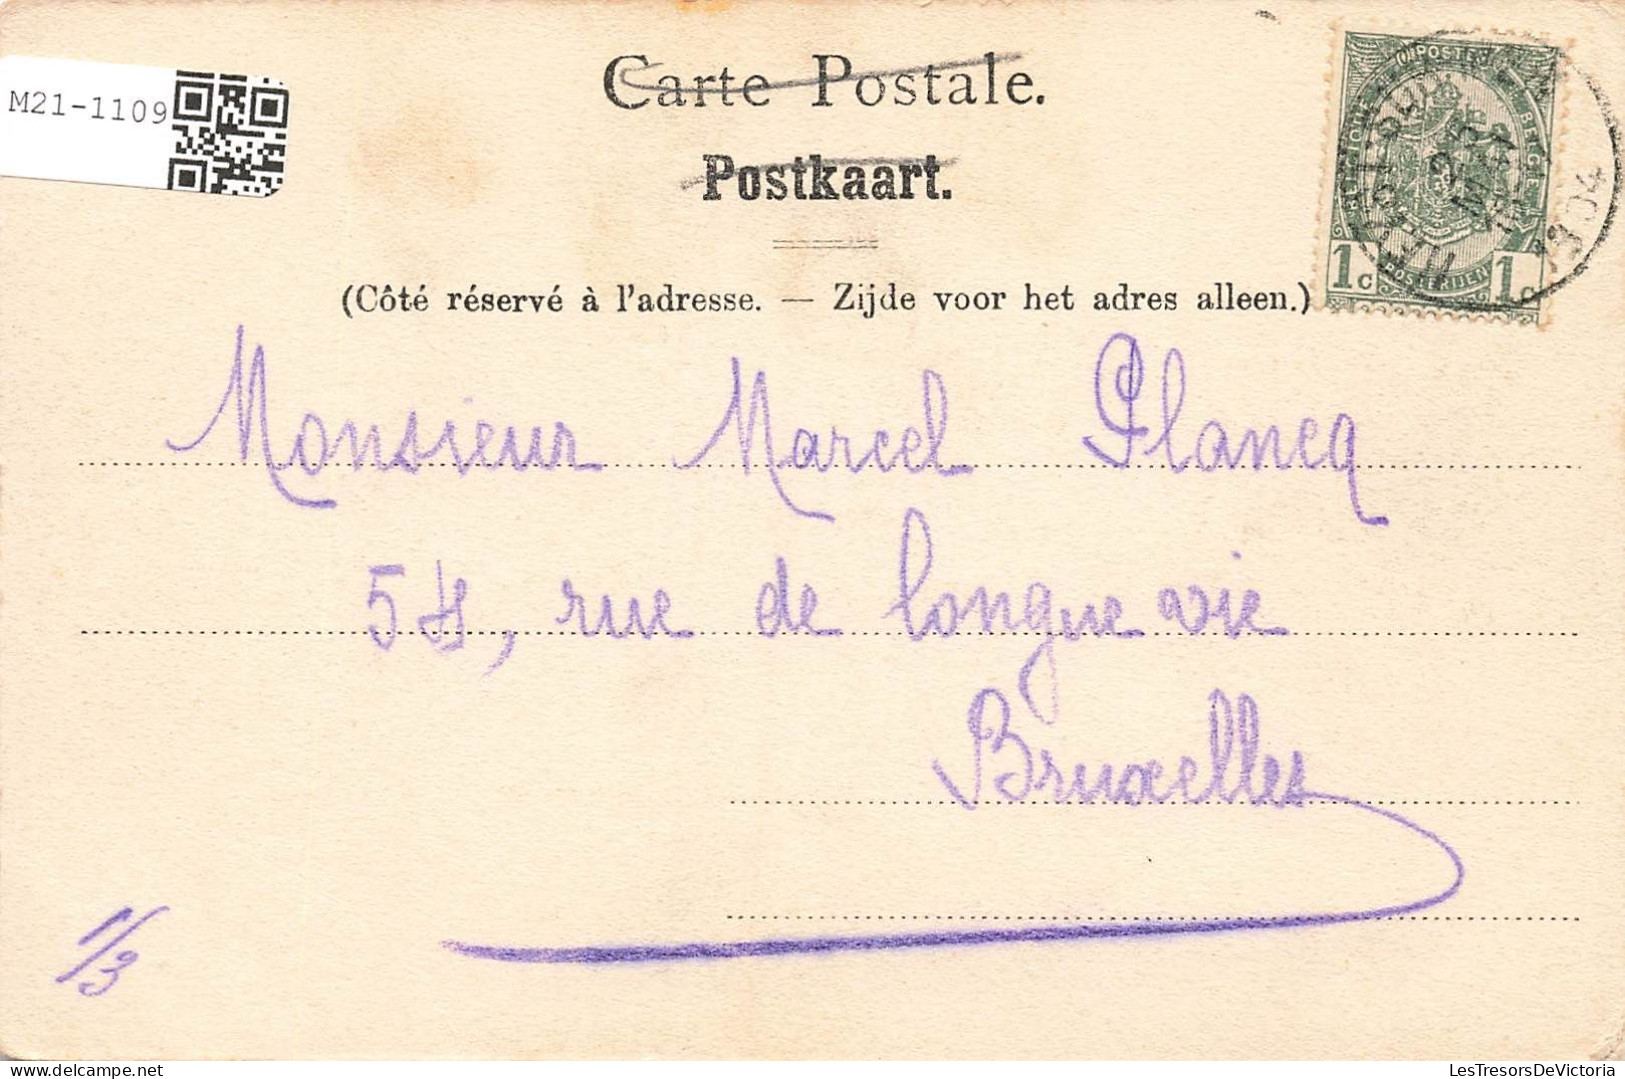 M21-1109
Carte Postale.
Postkaart.
(Côté réservé à l'adresse. — Zijde voor het adres alleen.)
POSTES
BELGIQUE BELGIË
1c POSTERIJEN 1c
1904
Monsieur Marcel Plancq
54, rue de longue vie
Bruxelles
1/3
LesTresorsDeVictoria